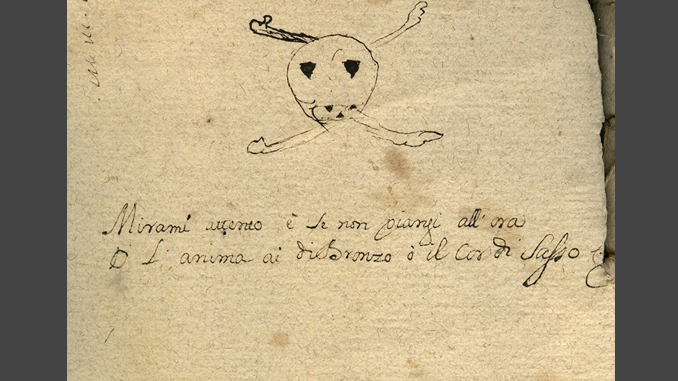 Mirami attento è se non piangi all'ora
O L'anima ai di Bronzo ò il Cor di Sasso